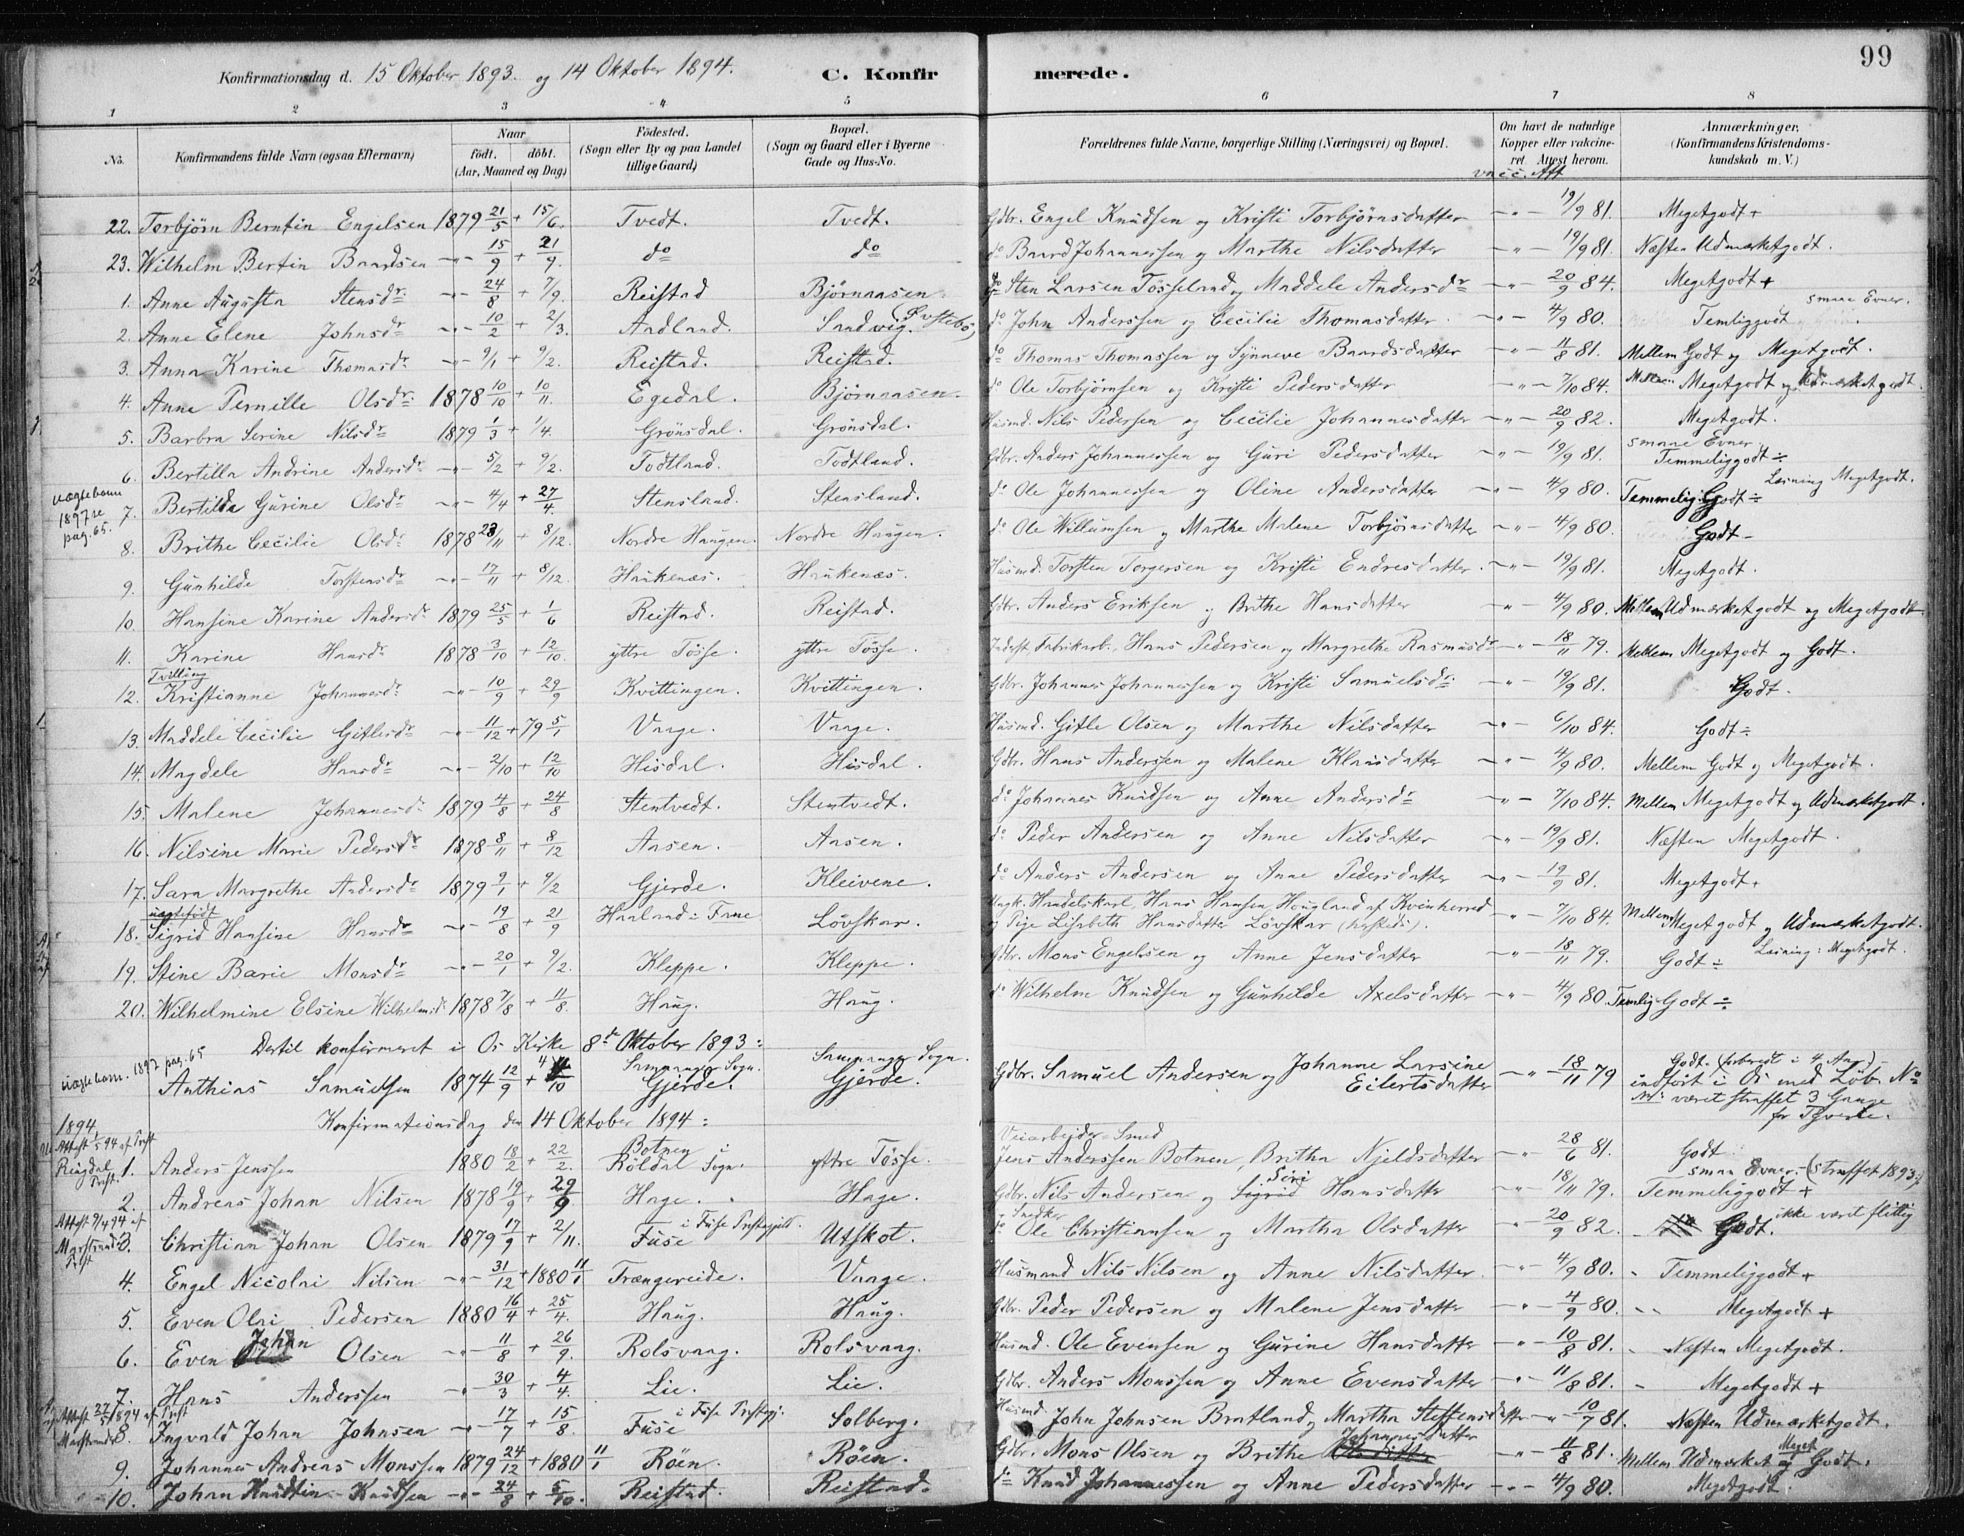 99
Konfirmationsdag d. 15 Oktober 1893. og 14 Oktober 1894. C. Konfirmerede.
1 2 3 4 5 6 7 8
No. Konfirmandens fulde Navn (ogsaa Efternavn) Naar født. døbt. (Aar, Maaned og Dag) Fødested. (Sogn eller By og paa Landet tillige Gaard) Bopæl. (Sogn og Gaard eller i Byerne Gade og Hus-No. Forældrenes fulde Navne, borgerlige Stilling (Næringsvei) og Bopæl. Om havt de naturlige Kopper eller vaccineret. Attest herom. Anmærkninger. (Konfirmandens Kristendomskundskab m. V.)
vacc. Att
22. Torbjørn Berntin Engelsen 1879 21/5 + 15/6. Tvedt. Tvedt. Gdbr. Engel Knudsen og Kristi Torbjørnsdatter -"- 19/9 81. Megetgodt +
23. Wilhelm Bertin Baardsen -"- 15/9 + 21/9. do do do Baard Johannessen og Marthe Nilsdatter -"- 19/9 81. Næsten Udmærketgodt.
1. Anne Augusta Stensdr -"- 24/8 + 7/9. Reistad Bjørnaasen. do Sten Larsen Tøsseland og Maddele Andersdr -"- 20/9 84. Megetgodt +
2. Anne Elene Johnsdr -"- 10/2 + 2/3. Aadland. Sandvig. do John Anderssen og Cecilie Thomasdatter -"- 4/9 80. Temliggodt smaae Evner.
3. Anna Karine Thomasdr -"- 9/1 + 9/2. Reistad. Reistad. do Thomas Thomassen og Synneve Baardsdatter -"- 11/8 81. Mellem Godt og Megetgodt.
4. Anne Pernille Olsdr 1878 10/10 + 10/11. Egedal. Bjørnaasen. do Ole Torbjørnsen og Kristi Pedersdatter -"- 7/10 84. Mellem Megetgodt og Udmærketgodt.
5. Barbra Serine Nilsdr 1879 1/3 + 1/4. Grønsdal. Grønsdal. Husmd. Nils Pedersen og Cecilie Johannesdatter -"- 20/9 82. Megetgodt.
6. Bertilla Andrine Andersdr -"- 5/2 + 9/2. Todtland. Todtland. Gdbr. Anders Johannessen og Guri Pedersdatter -"- 19/9 81. smaae Evner. Temmeliggodt ÷
uægtebarn 1897 se pag. 65.
7. Bertilda Gurine Olsdr -"- 4/4 + 27/4. Stensland. Stensland. do Ole Johannessen og Oline Andersdatter -"- 4/9 80. Temmelig Godt ÷ Læsning Megetgodt.
8. Brithe Cecilie Olsdr 1878 23/11 + 8/12. Nordre Haugen. Nordre Haugen. do Ole Willumsen og Marthe Malene Torbjørnsdatter -"- 4/9 80. Godt -
9. Gunhilde Torstensdr -"- 17/11 + 8/12. Haukenæs. Haukenæs. Husmd. Torsten Torgersen og Kristi Endresdatter. -"- 19/9 81. Megetgodt.
10. Hansine Karine Andersdr 1879 25/5 + 1/6 Reistad. Reistad. Gdbr. Anders Eriksen og Brithe Hansdatter -"- 4/9 80. Mellem Udmærketgodt og Megetgodt.
11. Karine Hansdr 1878 3/10 + 12/10. yttre Tøsse. yttre Tøsse. Inderst Fabrikarb. Hans Pedersen og Margrethe Rasmusdr -"- 18/11 79. Mellem Megetgodt og Godt.
Tvilling
12. Kristianne Johannesdr -"- 10/9 + 29/9 Kvittingen. Kvittingen. Gdbr. Johannes Johannessen og Kristi Samuelsdr -"- 19/9 81. Godt.
13. Maddele Cecilie Gitlesdr -"- 11/12 + 79 5/1 Vaage. Vaage. Husmd. Gitle Olsen og Marthe Nilsdatter -"- 6/10 84. Godt ÷
14. Magdele Hansdr -"- 2/10 + 12/10 Hisdal. Hisdal. Gdbr. Hans Anderssen og Malene Klausdatter -"- 4/9 80. Mellem Godt og Megetgodt.
15. Malene Johannesdr 1879 4/8 + 24/8 Stentvedt. Stentvedt. do Johannes Knudsen og Anne Andersdr -"- 7/10 84. Mellem Megetgodt og Udmærketgodt.
16. Nilsine Marie Pedersdr 1878 8/11 + 8/12 Aasen. Aasen. do Peder Andersen og Anne Nilsdatter -"- 19/9 81. Næsten Megetgodt.
17. Sara Margrethe Andersdr 1879 9/1 + 9/2 Gjerde. Kleivene. do Anders Andersen og Anne Pedersdatter -"- 19/9 81. Megetgodt +
uægtefødt
18. Sigrid Hansine Hansdr -"- 19/8 + 21/9 Haaland i Fane Løvskar. Ungk. Handelskarl Hans Hansen Hougland af Kvinherred og Pige Lisabeth Hansdatter Løvskar -"- 7/10 84. Mellem Megetgodt og Udmærketgodt.
19. Stine Barie Monsdr -"- 20/1 + 9/2. Kleppe. Kleppe. Gdbr. Mons Engelsen og Anne Jensdatter -"- 18/11 79. Godt ÷ Læsning: Megetgodt.
20. Wilhelmine Elsine Wilhelmsdr 1878 7/8 + 11/8. Haug. Haug. do Wilhelm Knudsen og Gunhilde Axelsdatter -"- 4/9 80 Temlig Godt ÷
Dertil konfirmeret i Os Kirke 8de Oktober 1893:
uægtebarn. 1897 pag. 65
Anthias Samuelsen 1874 12/9 + 4/10 Samnanger Sogn. Gjerde. Samnanger Sogn. Gjerde. Gdbr. Samuel Andersen og Johanne Larsine Eilertsdatter -"- 18/11 79 Godt. (forberedt i 4 Aar) - indført i Os med Løb. No
været straffet 3 Gange for Tyverie.
Konfirmationsdag den 14 Oktober 1894:
1894
1. Anders Jenssen 1880 18/2 + 22/2. Botnen i Røldal Sogn. yttre Tøsse. Veiarbejder - Smed Jens Anderssen Botnen, Britha Njeldsdatter -"- 28/6 81. Godt.
2. Andreas Johan Nilsen 1878 19/9 + 29/9 Hage. Hage. Gdbr. Nils Andersen og Sigrid Hansdatter -"- 18/11 79. smaa Evner - (straffet 1893) Temmeliggodt +
Attest 9/4 94 af Marstrand Prest
3. Christian Johan Olsen 1879 17/9 + 2/11. Fuse i Fuse Prestegjeld. Utskot. Snedker do Ole Christiansen og Martha Olsdatter -"- 20/9 82. - Godt. ikke været flittig
4. Engel Nicolai Nilsen -"- 31/12 + 1880 11/1 Trængereide. Vaage. Husmand Nils Nilsen og Anne Nilsdatter. -"- 4/9 80. - Temmeliggodt +
5. Even Olai Pedersen 1880 16/4 + 25/4. Haug. Haug. Gdbr. Peder Pedersen og Malene Jensdatter -"- 4/9 80. -" Megetgodt +
6. Even Johan Olsen -"- 11/8 + 26/9. Rolsvaag. Rolsvaag. Husmd. Ole Evensen og Gurine Hansdatter -"- 10/8 81. - Næsten Megetgodt.
7. Hans Anderssen -"- 30/3 + 4/4. Lie. Lie. Gdbr. Anders Monssen og Anne Evensdatter -"- 11/8 81. - Megetgodt +
Attest 27/5 1894 af Prest Marstrander
8. Ingvald Johan Johnsen -"- 17/7 + 15/8. Fuse i Fuse Prestegj. Solberg. Husmd John Johnsen Bratland og Martha Steffensdatter -"- 10/7 81. Næsten Udmærketgodt.
9. Johannes Andreas Monssen 1879 24/12 + 1880 11/1 Røen. Røen. Gdbr. Mons Olsen og Brithe Johannesdatter -"- 11/8 81. Mellem Udmærket og Meget Godt.
10. Johan Knudtin Knudsen -"- 24/8 + 5/10. Reistad. Reistad. do Knud Johannessen og Anne Pedersdatter -"- 4/9 80. Megetgodt.